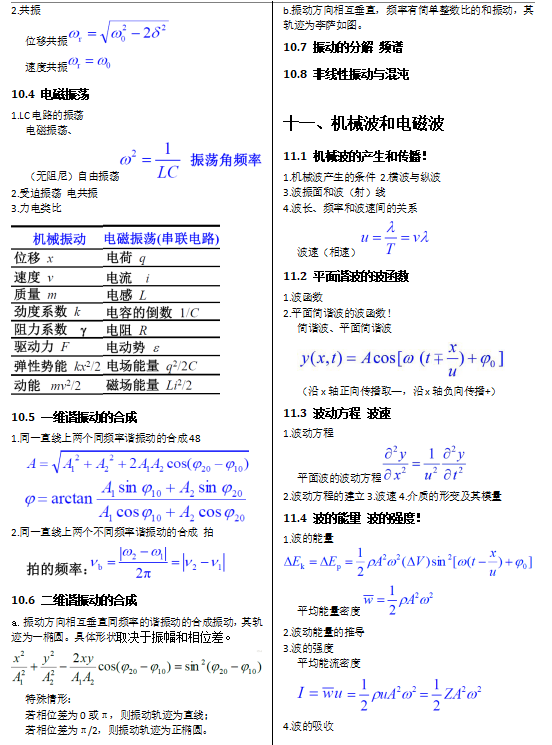 2.共振
位移共振 ω_r = √(ω_0² − 2δ²)
速度共振 ω_r = ω_0
10.4 电磁振荡
1.LC 电路的振荡
电磁振荡、
(无阻尼)自由振荡 ω² = 1/LC 振荡角频率
2.受迫振荡 电共振
3.力电类比
机械振动 电磁振荡(串联电路)
位移 x 电荷 q
速度 v 电流 i
质量 m 电感 L
劲度系数 k 电容的倒数 1/C
阻力系数 γ 电阻 R
驱动力 F 电动势 ε
弹性势能 kx²/2 电场能量 q²/2C
动能 mv²/2 磁场能量 Li²/2
10.5 一维谐振动的合成
1.同一直线上两个同频率谐振动的合成 48
A = √(A_1² + A_2² + 2A_1A_2 cos(φ_20 − φ_10))
φ = arctan (A_1 sin φ_10 + A_2 sin φ_20)/(A_1 cos φ_10 + A_2 cos φ_20)
2.同一直线上两个不同频率谐振动的合成 拍
拍的频率: ν_b = |ω_2 − ω_1|/2π = |ν_2 − ν_1|
10.6 二维谐振动的合成
a. 振动方向相互垂直同频率的谐振动的合成振动，其轨
迹为一椭圆。具体形状取决于振幅和相位差。
x²/A_1² + y²/A_2² − 2xy/A_1A_2 cos(φ_20 − φ_10) = sin²(φ_20 − φ_10)
特殊情形:
若相位差为 0 或π，则振动轨迹为直线;
若相位差为π/2，则振动轨迹为正椭圆。
b.振动方向相互垂直，频率有简单整数比的和振动，其
轨迹为李萨如图。
10.7 振动的分解 频谱
10.8 非线性振动与混沌
十一、机械波和电磁波
11.1 机械波的产生和传播!
1.机械波产生的条件 2.横波与纵波
3.波振面和波（射）线
4.波长、频率和波速间的关系
波速（相速） u = λ/T = νλ
11.2 平面谐波的波函数
1.波函数
2.平面简谐波的波函数!
简谐波、平面简谐波
y(x,t) = A cos[ω (t ∓ x/u) + φ_0]
（沿 x 轴正向传播取—，沿 x 轴负向传播+）
11.3 波动方程 波速
1.波动方程
平面波的波动方程 ∂²y/∂x² = 1/u² ∂²y/∂t²
2.波动方程的建立 3.波速 4.介质的形变及其模量
11.4 波的能量 波的强度!
1.波的能量
ΔE_k = ΔE_p = 1/2 ρA²ω²(ΔV) sin²[ω(t − x/u) + φ_0]
平均能量密度 w̅ = 1/2 ρA²ω²
2.波动能量的推导
3.波的强度
平均能流密度
I = w̅u = 1/2 ρuA²ω² = 1/2 ZA²ω²
4.波的吸收